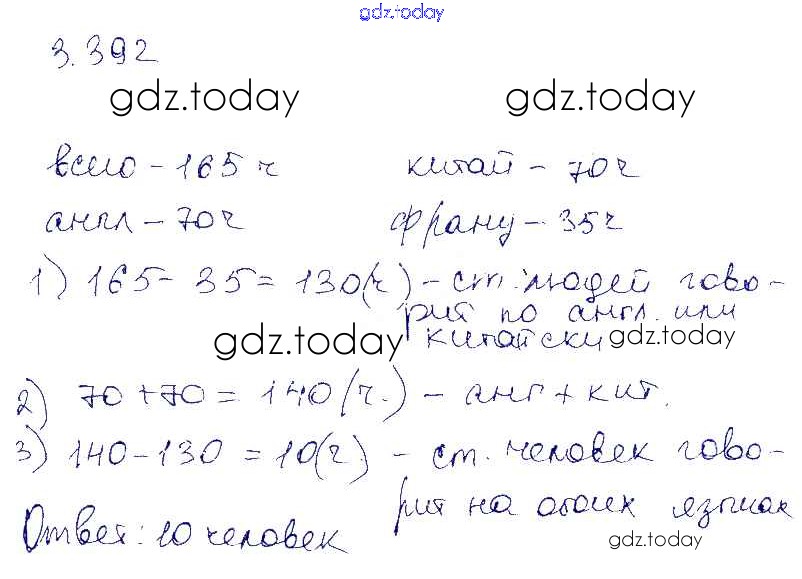 gdz.today
3.392
gdz.today gdz.today
всего - 165 ч китай - 70 ч
англ - 70 ч франц - 35 ч
1) 165 - 35 = 130 (ч) - ст. людей гово-
рит по англ. или
gdz.today китайски gdz.today
2) 70 + 70 = 140 (ч.) - анг + кит.
3) 140 - 130 = 10 (ч) - ст. человек гово-
рит на обоих языках
Ответ: 10 человек
gdz.today